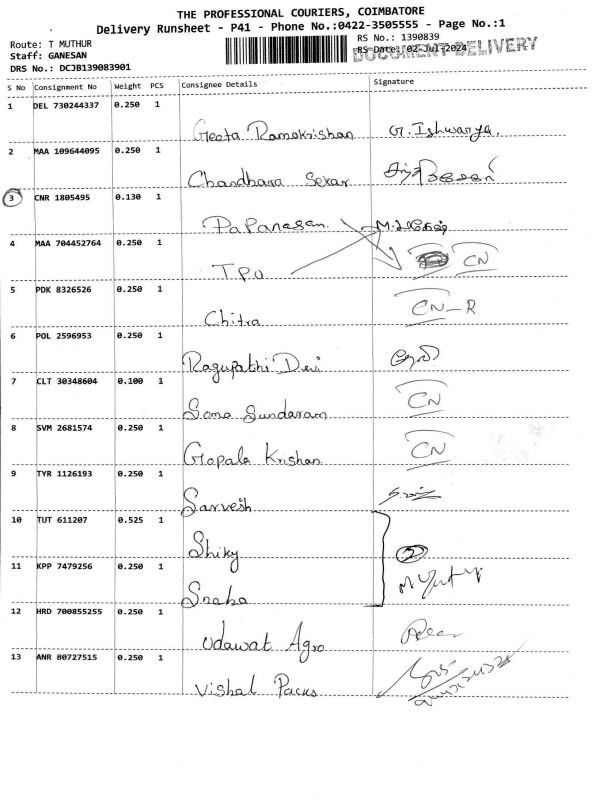 THE PROFESSIONAL COURIERS, COIMBATORE
Delivery Runsheet - P41 - Phone No.:0422-3505555 - Page No.:1
Route: T MUTHUR
RS No.: 1390839
Staff: GANESAN
RS Date: 02-Jul-2024
DOCUMENT DELIVERY
DRS No.: DCJB139083901
S No Consignment No Weight PCS Consignee Details Signature
1 DEL 730244337 0.250 1
Geeta Ramakrishan G. Ishwarya.
2 MAA 109644095 0.250 1
Chandhara Sekar
3 CNR 1805495 0.130 1
Papanasam.
4 MAA 704452764 0.250 1
TPO CN
5 PDK 8326526 0.250 1
Chitra CN-R
6 POL 2596953 0.250 1
Ragupathi Devi தேவி
7 CLT 30348604 0.100 1
Soma Sundaram CN
8 SVM 2681574 0.250 1
Gopala Krishan CN
9 TYR 1126193 0.250 1
Sarvesh
10 TUT 611207 0.525 1
Shiky 2
11 KPP 7479256 0.250 1
Sneha
12 HRD 700855255 0.250 1
Udawat Agro
13 ANR 80727515 0.250 1
Vishal Packs